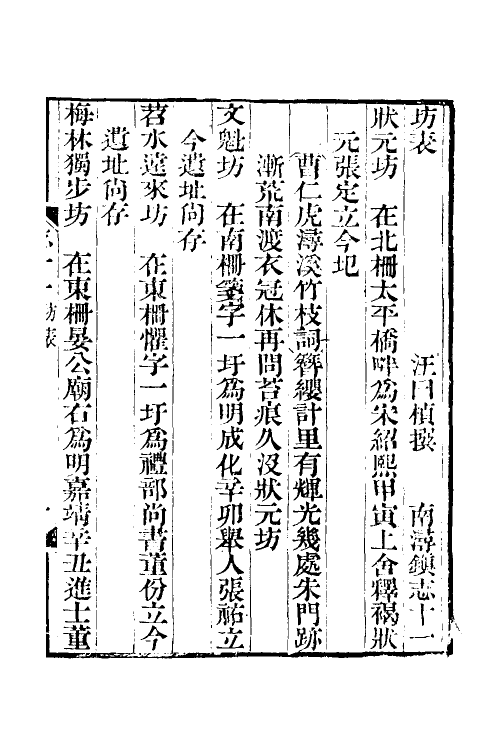 坊表　汪曰楨撰　南潯鎮志十一
狀元坊　在北柵太平橋畔爲宋紹熙甲寅上舍釋褐狀
元張定立今圮
曹仁虎潯溪竹枝詞簪纓計里有輝光幾處朱門跡
漸荒南渡衣冠休再問苔痕久沒狀元坊
文魁坊　在南柵字一圩爲明成化辛卯舉人張祐立
今遺址尙存
苕水遠來坊　在東柵懼字一圩爲禮部尙書董份立今
遺址尙存
梅林獨步坊　在東柵晏公廟右爲明嘉靖辛丑進士董
志十一　坊表　一